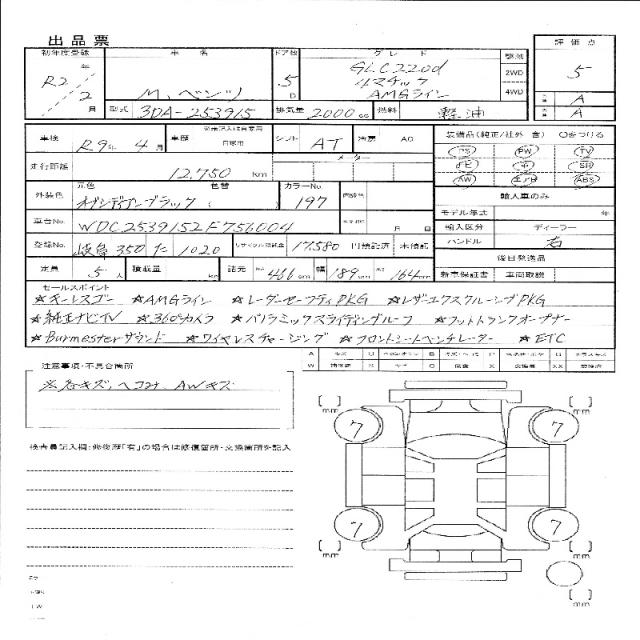 出品票
初年度登録 車名 ドア数 グレード 駆動 評価点
R2年/2月 M、ベンツ 5D GLC220d 4マチック AMGライン 2WD 4WD 5
型式 3DA-253915 排気量 2000cc 燃料 軽油 A A
車検 R9年4月 車歴 自家用 シフト AT 冷房 AC 装備品(純正/社外 含) ○をつける
走行距離 12,750km メーター PS PW TV
外装色 元色 色替 カラーNo SR
オブシディアンブラック ( ) 197 AW エアB ABS
車台No. WDC2539152F756004 月 日 輸入車のみ
モデル年式 年
登録No. 岐阜 350 た 1020 リサイクル預託金 17,580 円預託済 未預託 輸入区分 ディーラー
ハンドル 右
定員 5人 積載量 諸元 466cm 幅 189cm 164cm 後日発送品
新車保証書 車両取説
セールスポイント
☆キーレスゴー ☆AMGライン ☆レーダーセーフティPKG ☆レザーエクスクルーシブPKG
☆純正ナビTV ☆360°カメラ ☆パノラミックスライディングルーフ ☆フットトランクオープナー
☆Burmesterサウンド ☆ワイヤレスチャージング ☆フロントシートベンチレーター ☆ETC
注意事項・不具合箇所
※各キズ、ヘコミ AWキズ
検査員記入欄:修復歴「有」の場合は修復箇所・交換箇所を記入
[ ]mm [ ]mm
7 7
7 7
[ ]mm [ ]mm
[ ]mm